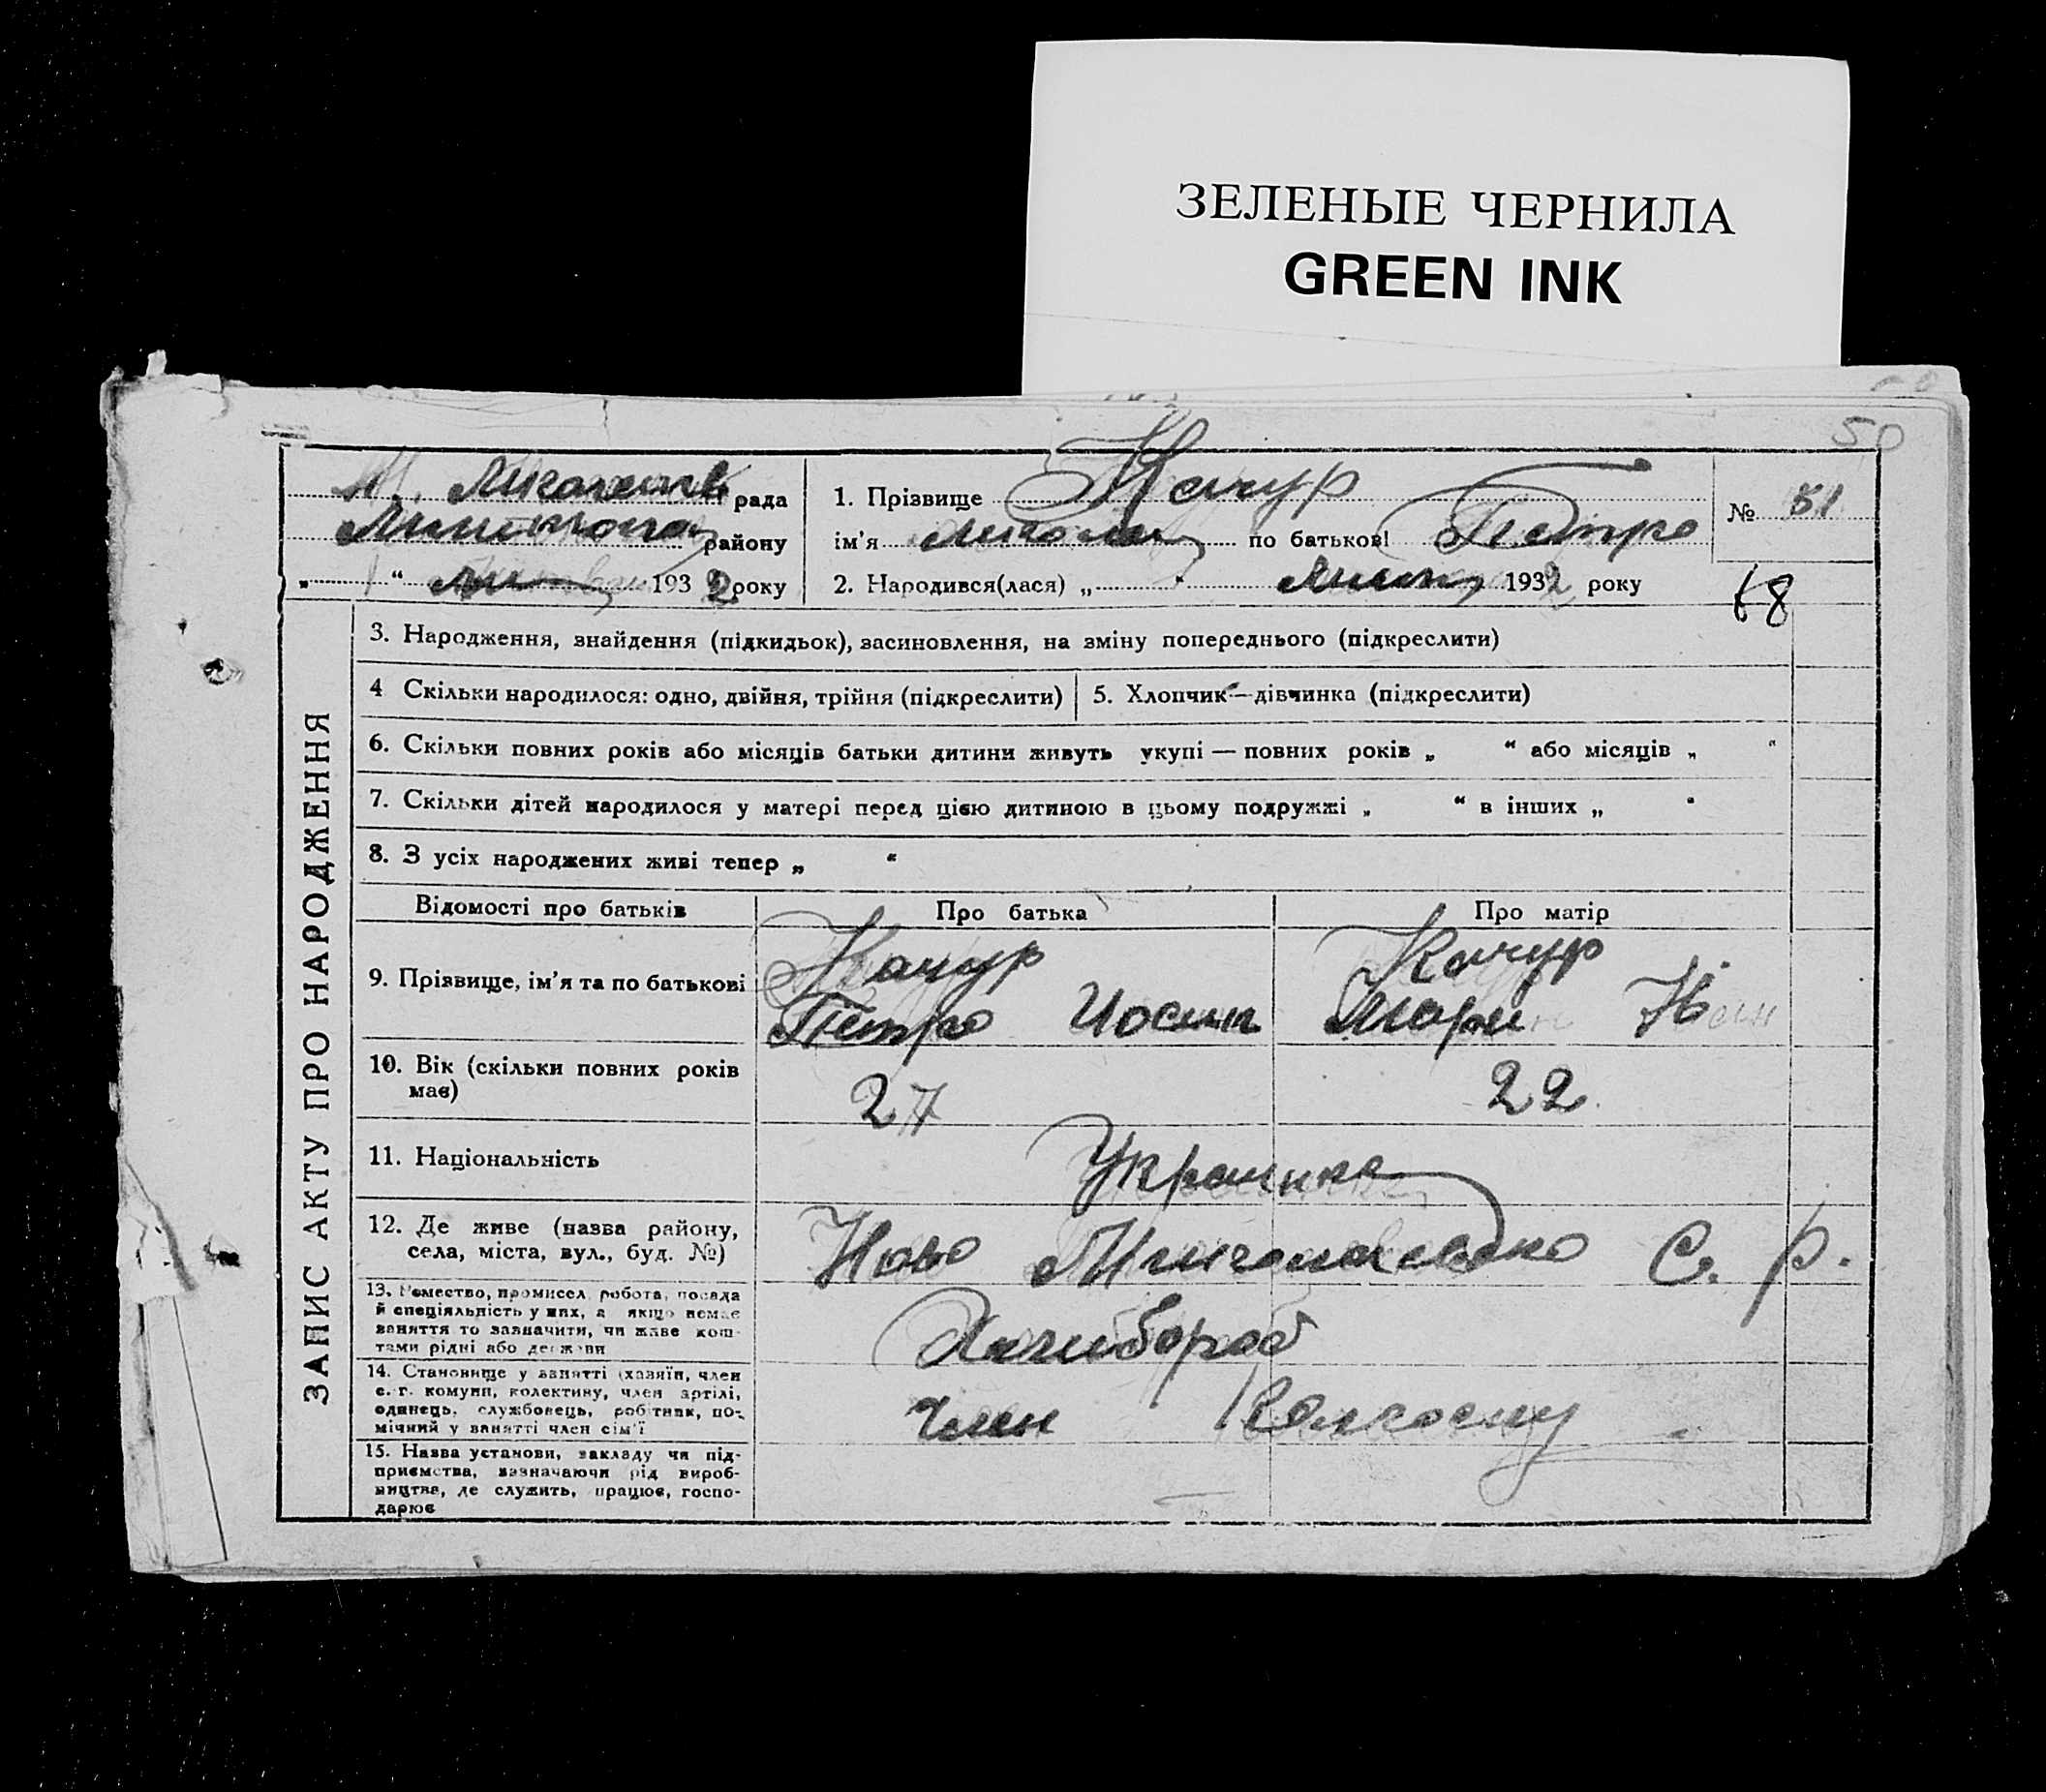 ЗЕЛЕНЫЕ ЧЕРНИЛА
GREEN INK
50
рада
району
" " 1932 року
1. Прізвище Качур
ім'я Микола по батькові Петро
2. Народився(лася) „ " 1932 року
№ 51
68
ЗАПИС АКТУ ПРО НАРОДЖЕННЯ
3. Народження, знайдення (підкидьок), засиновлення, на зміну попереднього (підкреслити)
4 Скільки народилося: одно, двійня, трійня (підкреслити)
5. Хлопчик—дівчинка (підкреслити)
6. Скільки повних років або місяців батьки дитини живуть укупі — повних років „ " або місяців „ "
7. Скільки дітей народилося у матері перед цією дитиною в цьому подружжі „ " в інших „ "
8. З усіх народжених живі тепер „ "
Відомості про батьків Про батька Про матір
9. Прізвище, ім'я та по батькові
Качур
Петро Иосип
Качур
Мари
10. Вік (скільки повних років має)
27 22
11. Національність
Украинка
12. Де живе (назва району, села, міста, вул., буд. №)
Ново С. р.
13. Ремество, промисел, робота, посада
й спеціяльність у них, а якщо немає
заняття то зазначити, чи живе кош-
тами рідні або держави
Хлибороб
14. Становище у занятті (хазяїн, член
с.-г. комуни, колективу, член артілі,
одинець, службовець, робітник, по-
мічний у занятті член сім'ї
Член Колгоспу
15. Назва установи, закладу чи під-
приємства, зазначаючи рід вироб-
ництва, де служить, працює, госпо-
дарює